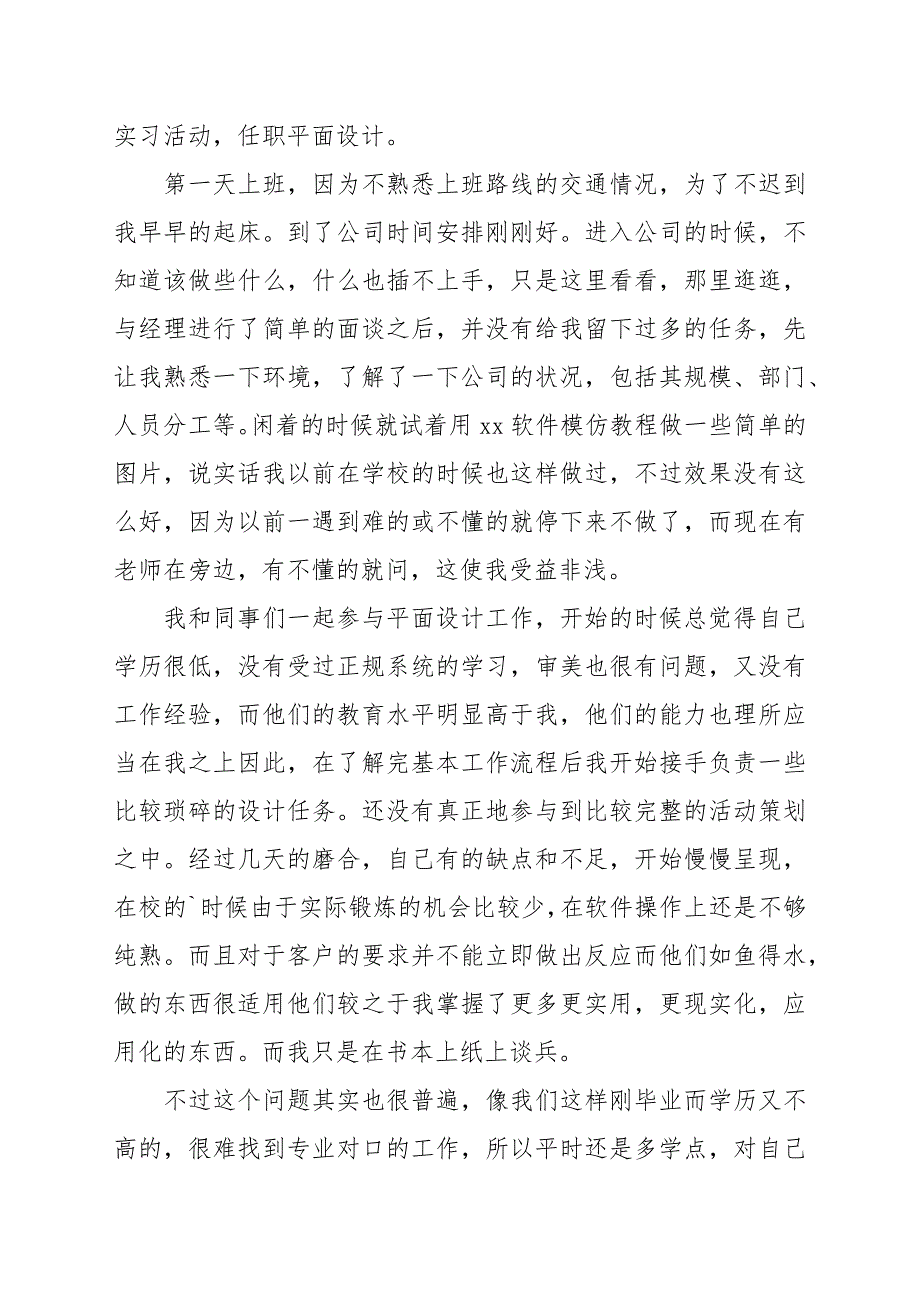 实习活动，任职平面设计。
第一天上班，因为不熟悉上班路线的交通情况，为了不迟到
我早早的起床。到了公司时间安排刚刚好。进入公司的时候，不
知道该做些什么，什么也插不上手，只是这里看看，那里逛逛，
与经理进行了简单的面谈之后，并没有给我留下过多的任务，先
让我熟悉一下环境，了解了一下公司的状况，包括其规模、部门、
人员分工等。闲着的时候就试着用 xx 软件模仿教程做一些简单的
图片，说实话我以前在学校的时候也这样做过，不过效果没有这
么好，因为以前一遇到难的或不懂的就停下来不做了，而现在有
老师在旁边，有不懂的就问，这使我受益非浅。
我和同事们一起参与平面设计工作，开始的时候总觉得自己
学历很低，没有受过正规系统的学习，审美也很有问题，又没有
工作经验，而他们的教育水平明显高于我，他们的能力也理所应
当在我之上因此，在了解完基本工作流程后我开始接手负责一些
比较琐碎的设计任务。还没有真正地参与到比较完整的活动策划
之中。经过几天的磨合，自己有的缺点和不足，开始慢慢呈现，
在校的`时候由于实际锻炼的机会比较少，在软件操作上还是不够
纯熟。而且对于客户的要求并不能立即做出反应而他们如鱼得水，
做的东西很适用他们较之于我掌握了更多更实用，更现实化，应
用化的东西。而我只是在书本上纸上谈兵。
不过这个问题其实也很普遍，像我们这样刚毕业而学历又不
高的，很难找到专业对口的工作，所以平时还是多学点，对自己